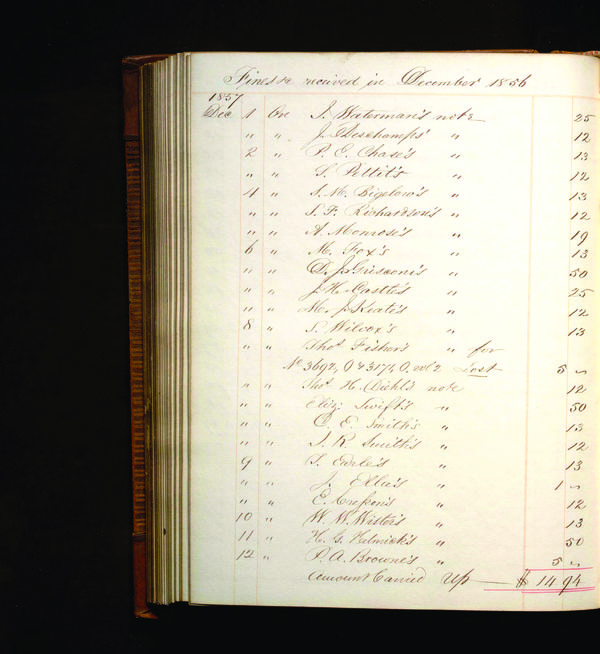 Fines &c received in December 1856
1857
Dec 1 On S. Waterman's note 25
" " J. Deschamps' " 12
2 " P. E. Chase's " 13
" " S. Pettit's " 12
4 " S. M. Bigelow's " 13
" " S. F. Richardson's " 12
" " A. Monrose's " 19
6 " M. Fox's " 13
" " D. J. Griscom's " 50
" " J. H. Castle's " 25
" " M. J. Keate's " 12
8 " S. Wilcox's " 13
" " Thos Fisher's " for
No 3692, O & 3174 O, vol 2 Lost 5 "
" " Thos H. Diehl's note 12
" " Eliz. Swift's " 50
" " C. E. Smith's " 13
" " S. R. Smith's " 12
9 " T. Earle's " 13
" " J. " 1 "
" " E. Cresson's " 12
10 " W. W. Wister's " 13
11 " H. G. Helmick's " 50
12 " P. A. Browne's " 5 "
Amount Carried Up $ 14 94